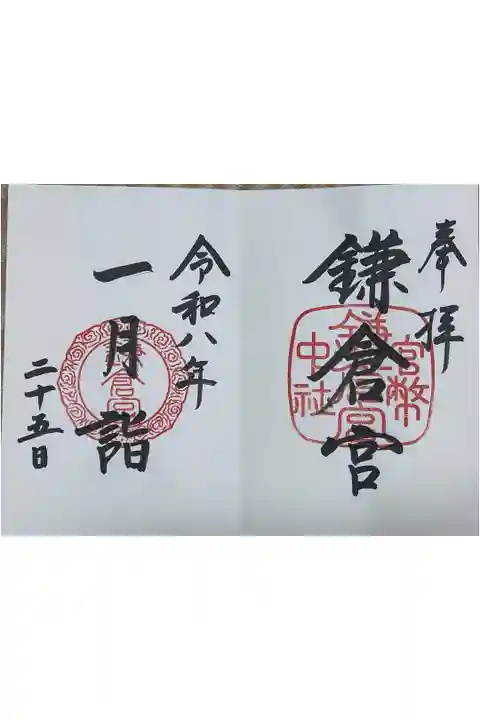 奉拝
鎌倉宮
官幣
鎌倉宮
中社
令和八年
一月詣
鎌倉宮
二十五日